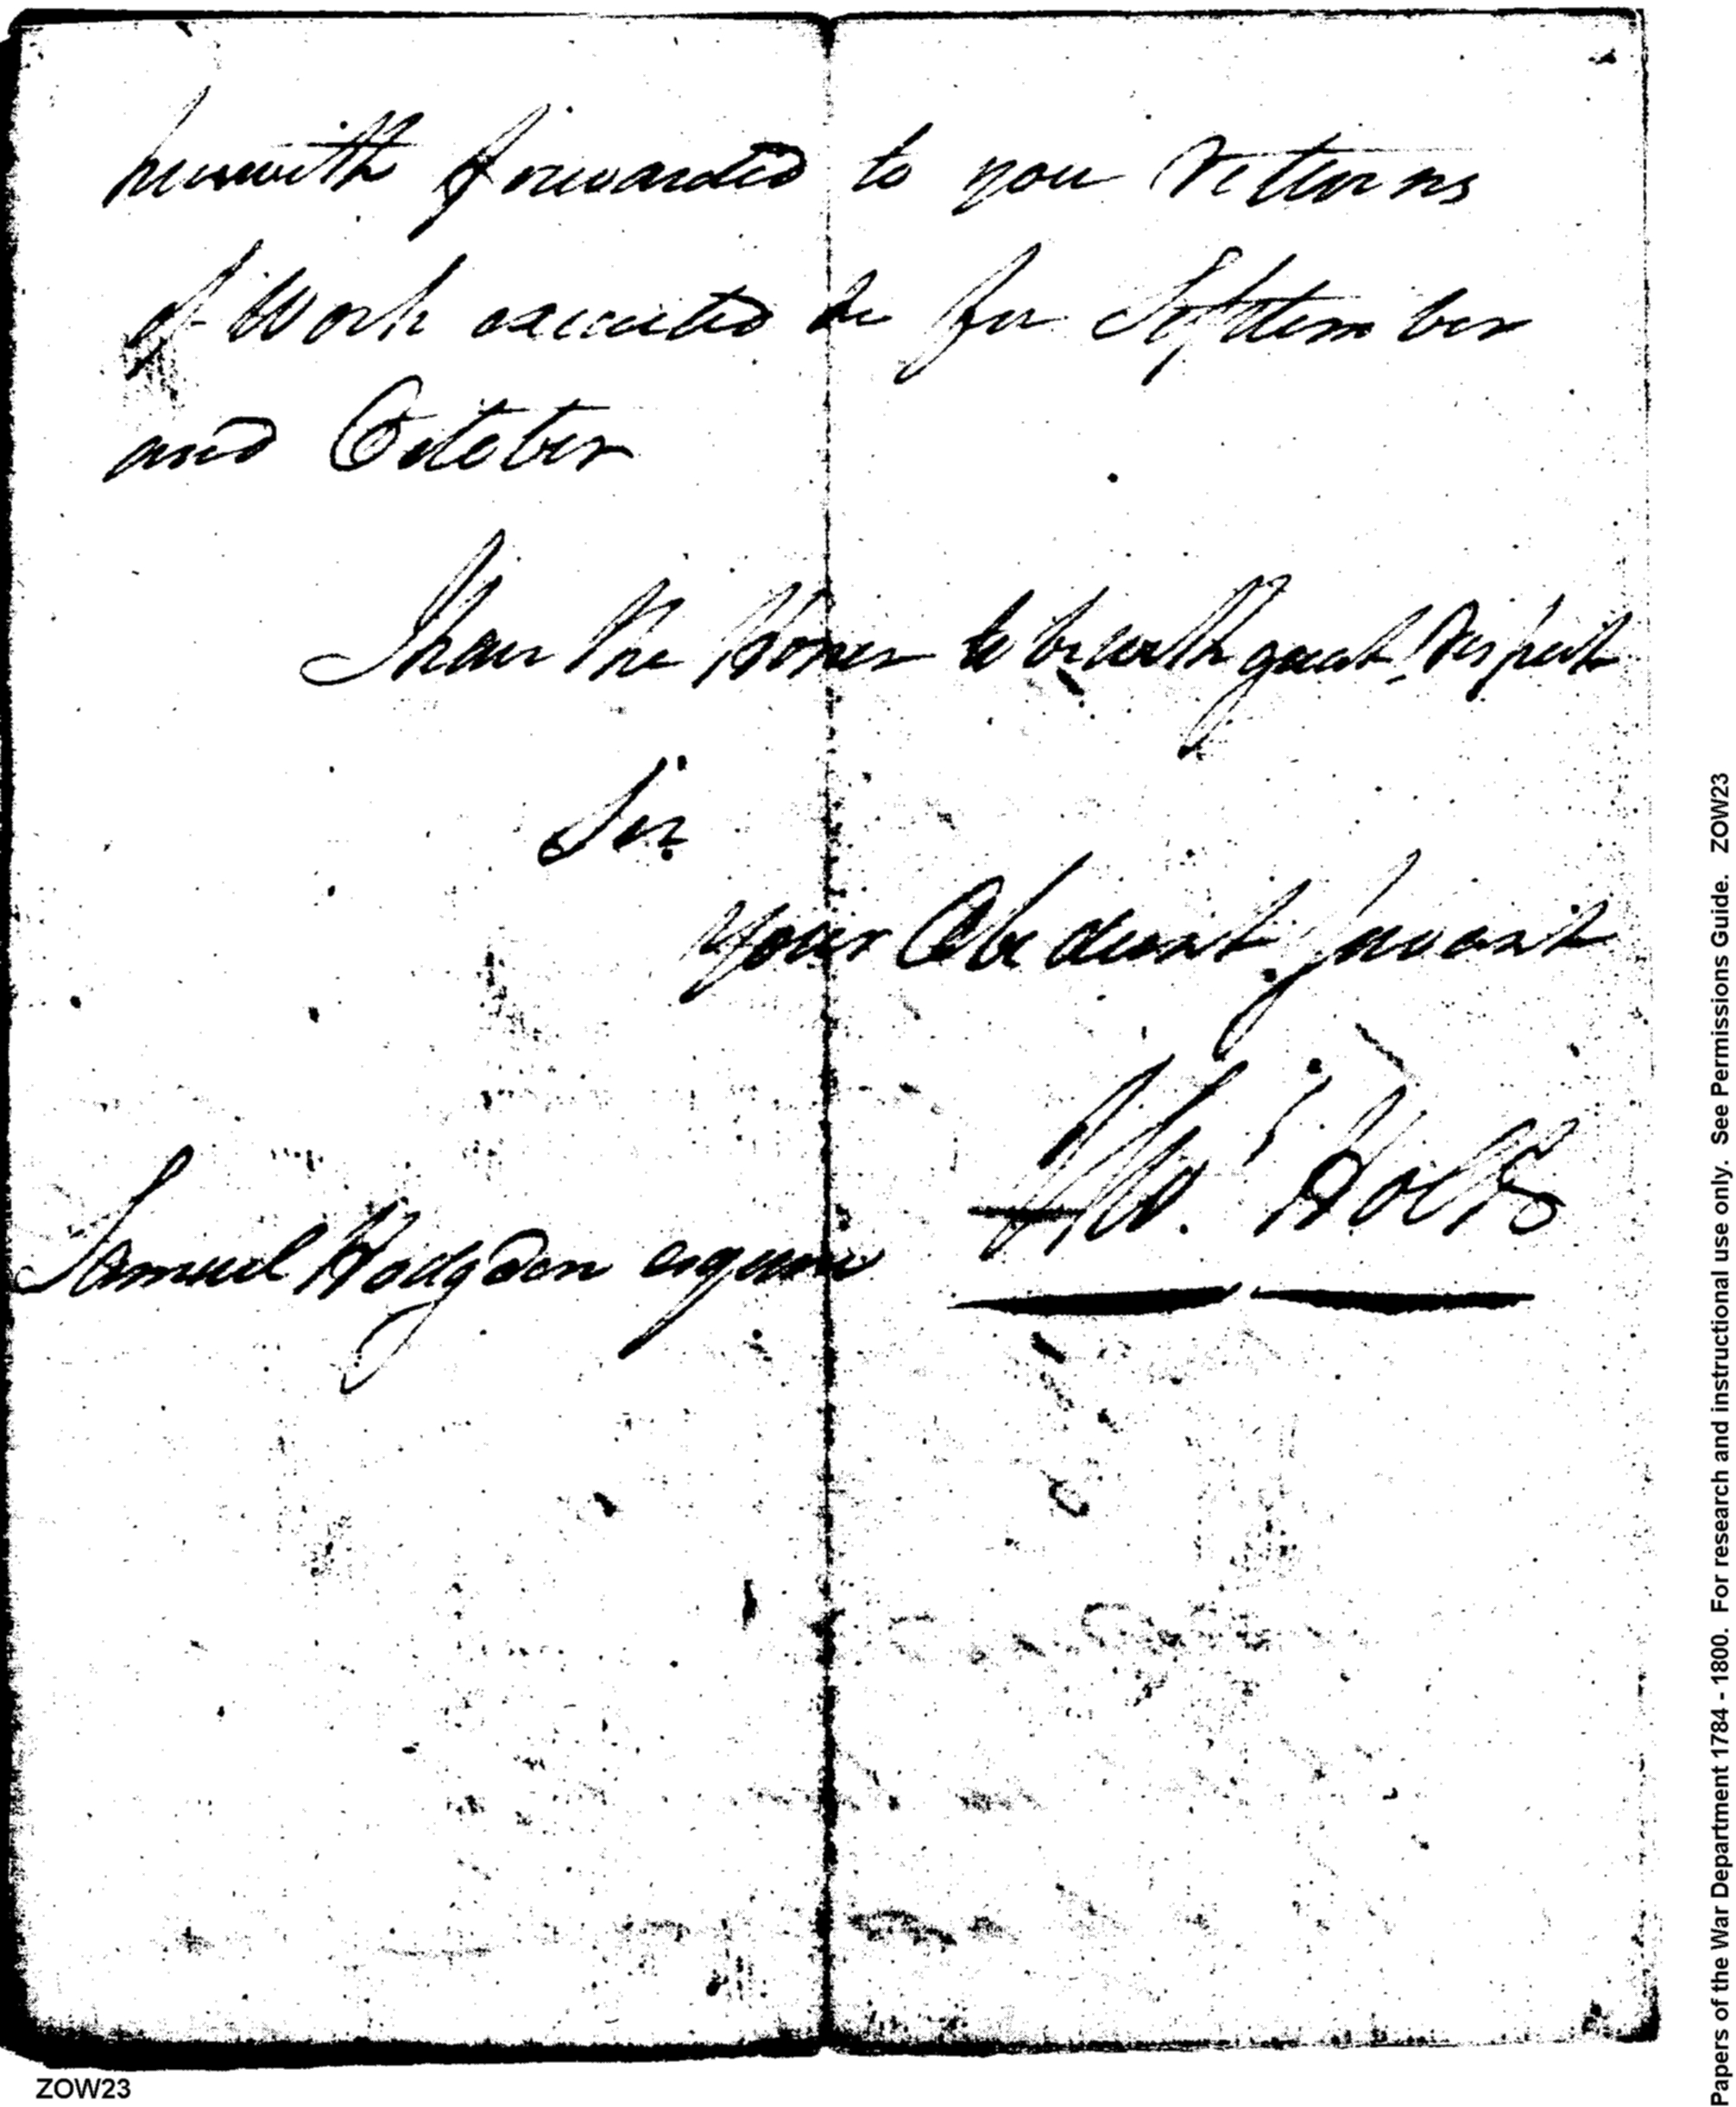 herewith forwarded to you returns
of Work executed &c for September
and October
I have the Honor to be with great Respect
Sir.
Your Obedient Servant
Samuel Hodgdon esquire
ZOW23
Papers of the War Department 1784 - 1800. For research and instructional use only. See Permissions Guide. ZOW23